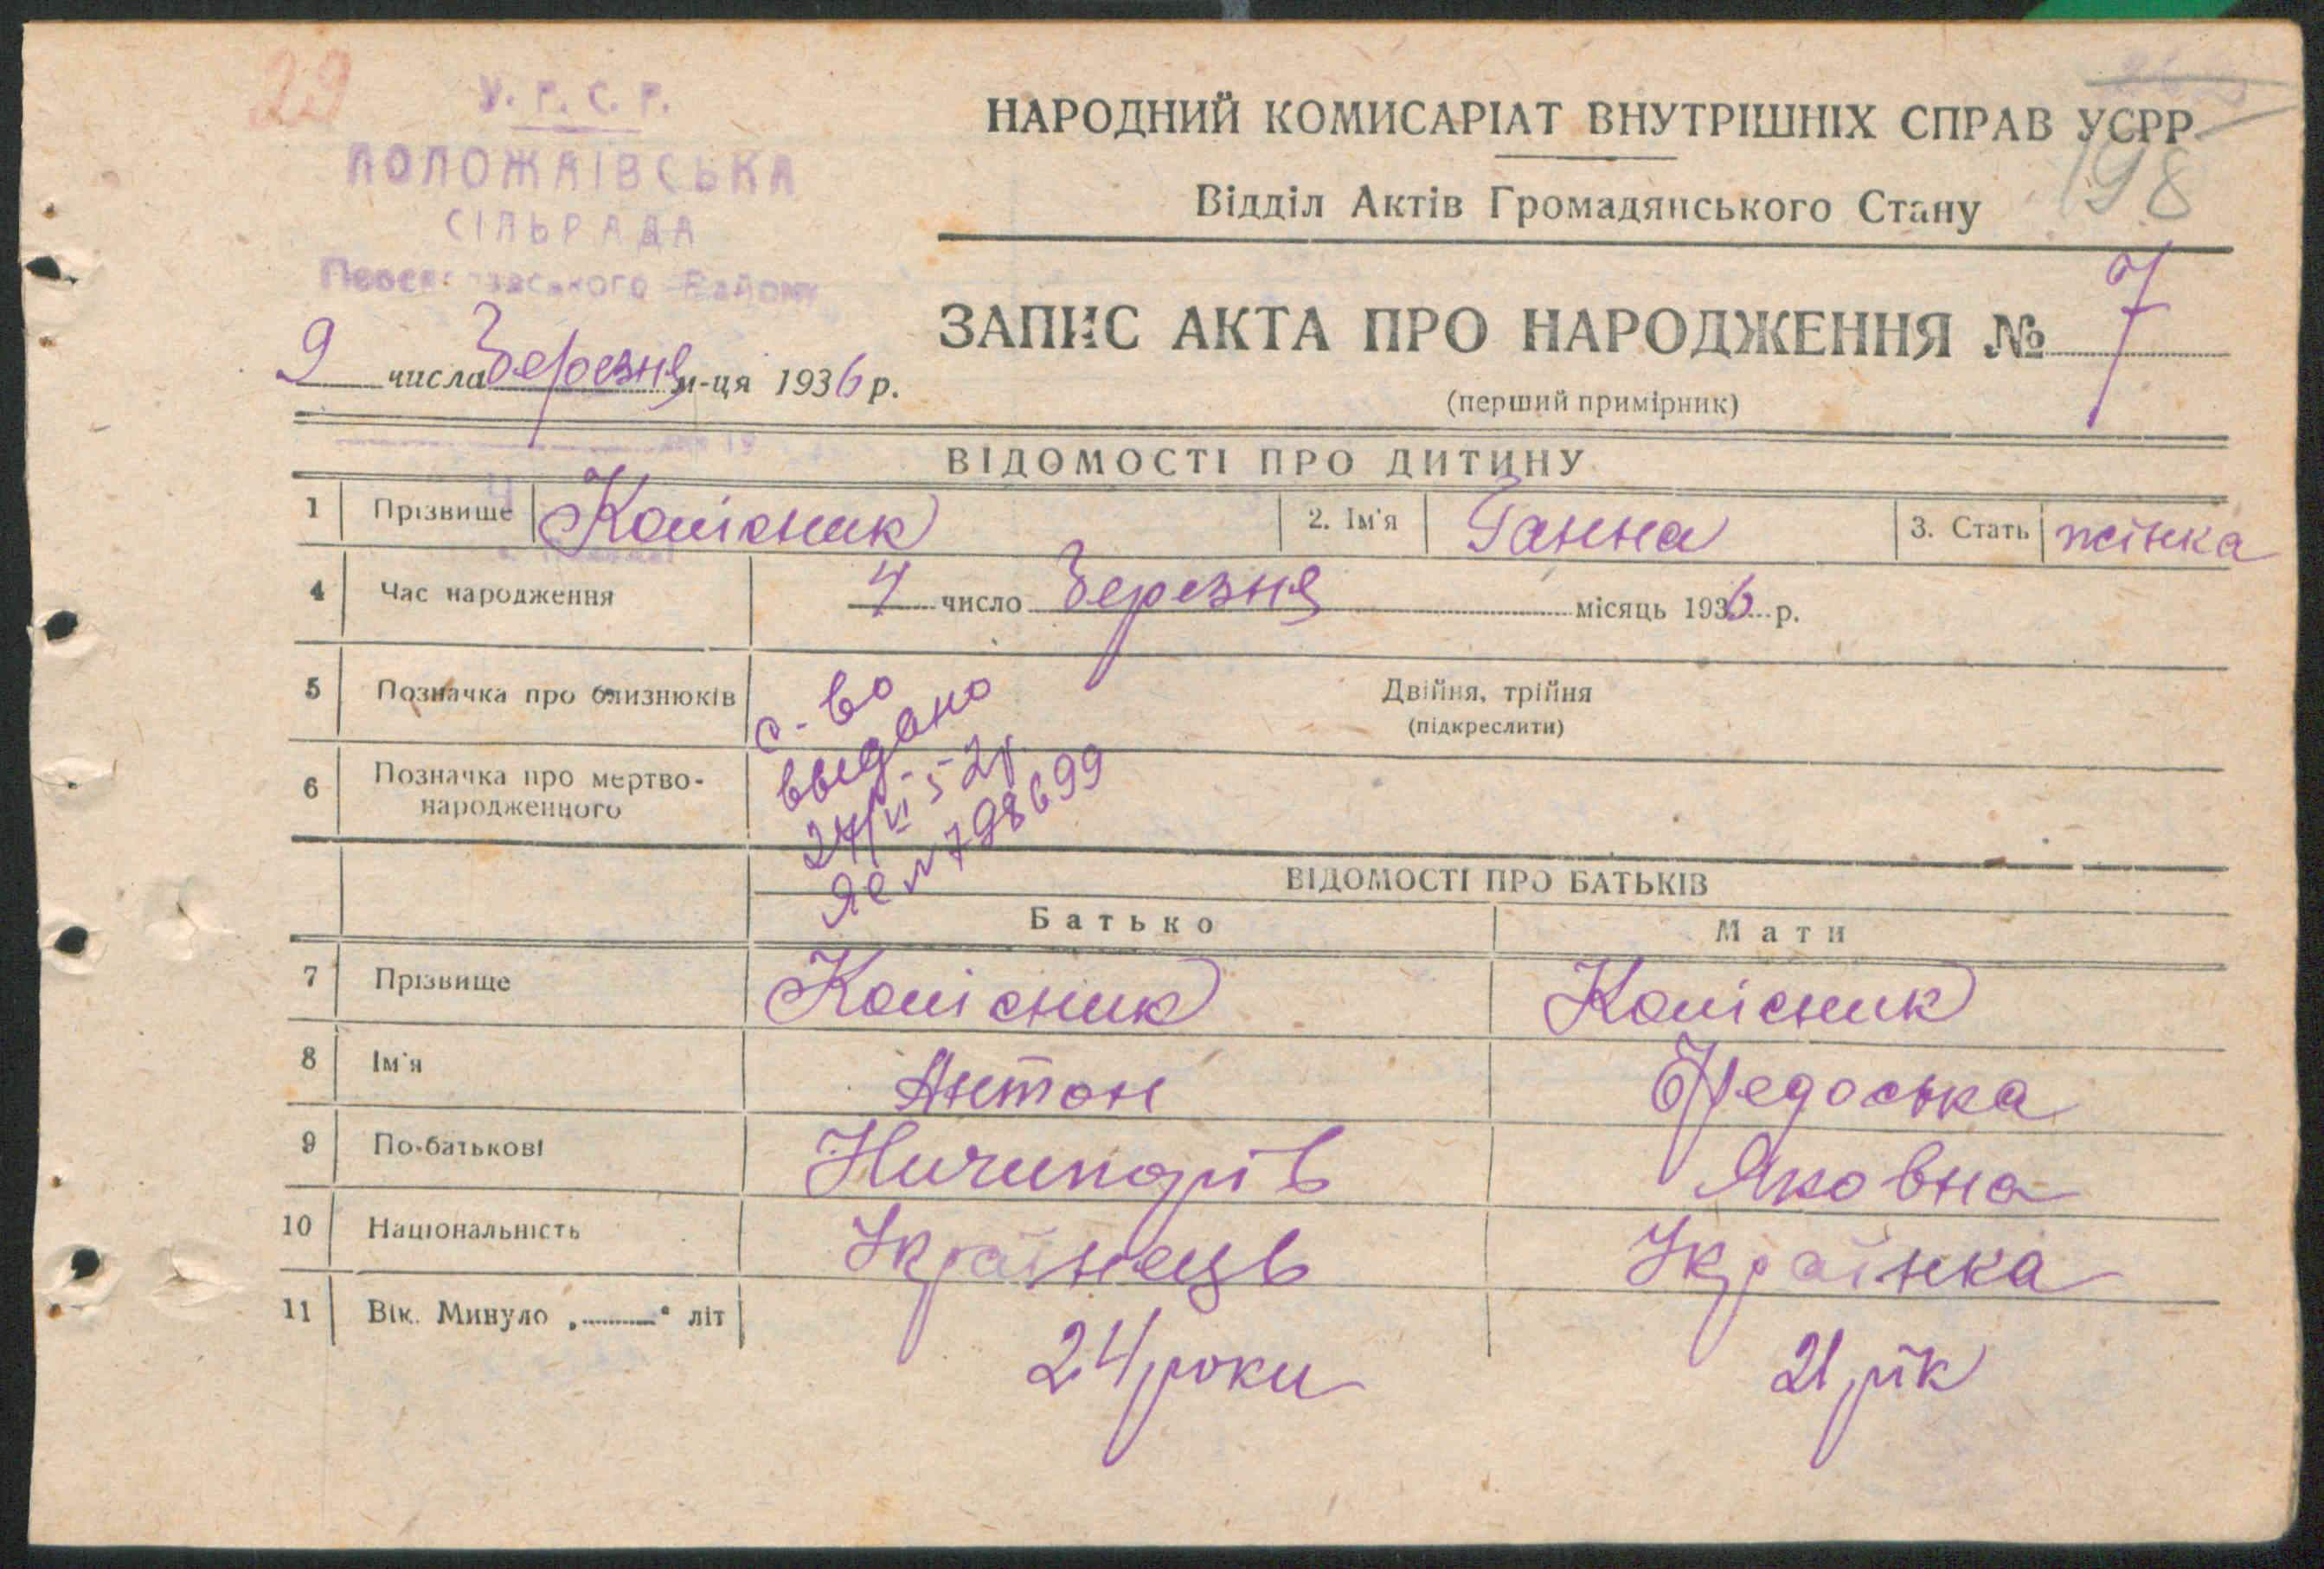 29
У. Р. С. Р.
ПОЛОЖАЇВСЬКА
СІЛЬРАДА
Району
НАРОДНИЙ КОМИСАРІАТ ВНУТРІШНІХ СПРАВ УСРР
198
Відділ Актів Громадянського Стану
9 числа Березня м-ця 1936 р.
ЗАПИС АКТА ПРО НАРОДЖЕННЯ № 7
(перший примірник)
ВІДОМОСТІ ПРО ДИТИНУ
1 Прізвище Колісник 2. Ім'я Ганна 3. Стать жінка
4 Час народження 4 число Березня місяць 1936 р.
5 Позначка про близнюків Двійня, трійня
(підкреслити)
6 Позначка про мертво-
народженного
с-во
выдано
24/VI-52г
ЯЕ № 798699
ВІДОМОСТІ ПРО БАТЬКІВ
Батько Мати
7 Прізвище Колісник Колісник
8 Ім'я Антон Федоська
9 По-батькові Ничипорів Яковна
10 Національність Українець Українка
11 Вік. Минуло „ “ літ 24 роки 21 рік